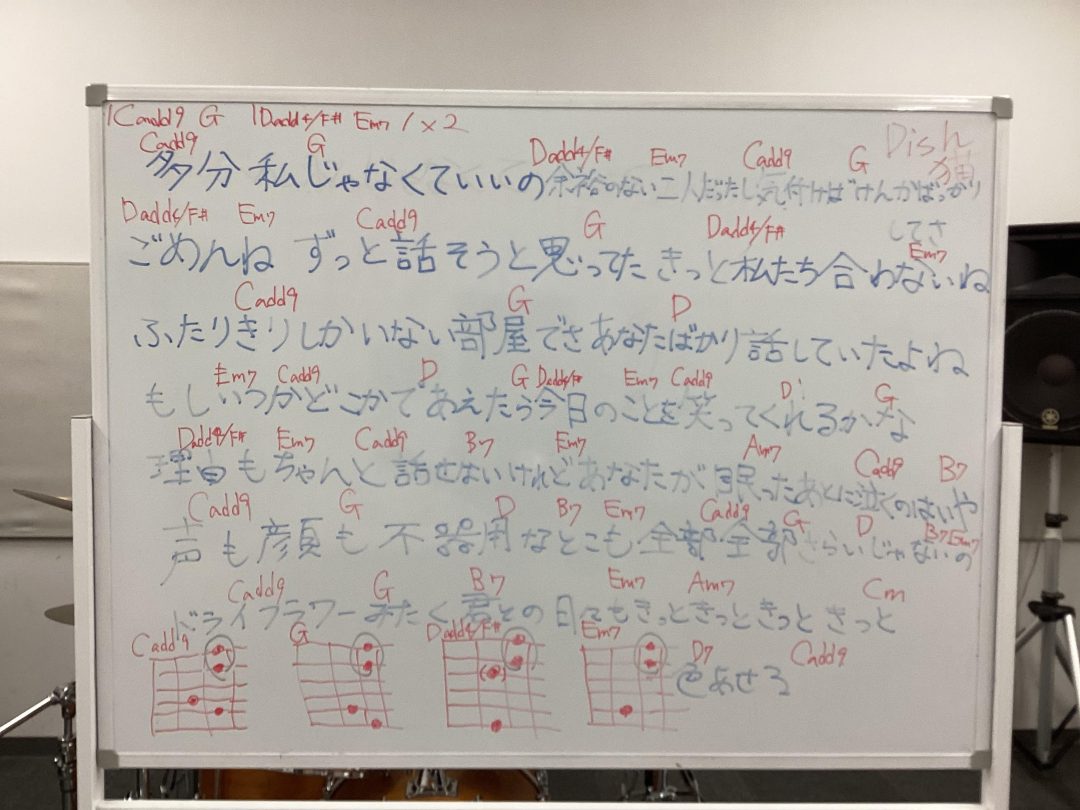 |Cadd9 G |Dadd4/F# Em7 / × 2
Dish
猫
Cadd9 G Dadd4/F# Em7 Cadd9 G
多分私じゃなくていいの余裕のない二人だったし気付けばけんかばっかり
してさ
Dadd4/F# Em7 Cadd9 G Dadd4/F# Em7
ごめんね ずっと話そうと思ってた きっと私たち合わないね
Cadd9 G D
ふたりきりしかいない部屋でさあなたばかり話していたよね
Em7 Cadd9 D G Dadd4/F# Em7 Cadd9 D G
もしいつかどこかであえたら今日のことを笑ってくれるかな
Dadd4/F# Em7 Cadd9 B7 Em7 Am7 Cadd9 B7
理由もちゃんと話せないけれどあなたが眠ったあとに泣くのはいや
Cadd9 G D B7 Em7 Cadd9 G D B7 Em7
声も顔も不器用なとこも全部全部きらいじゃないの
Cadd9 G B7 Em7 Am7 Cm
ドライフラワーみたく君との日々もきっときっときっときっと
D7 Cadd9
色あせる
Cadd9 G Dadd4/F# Em7